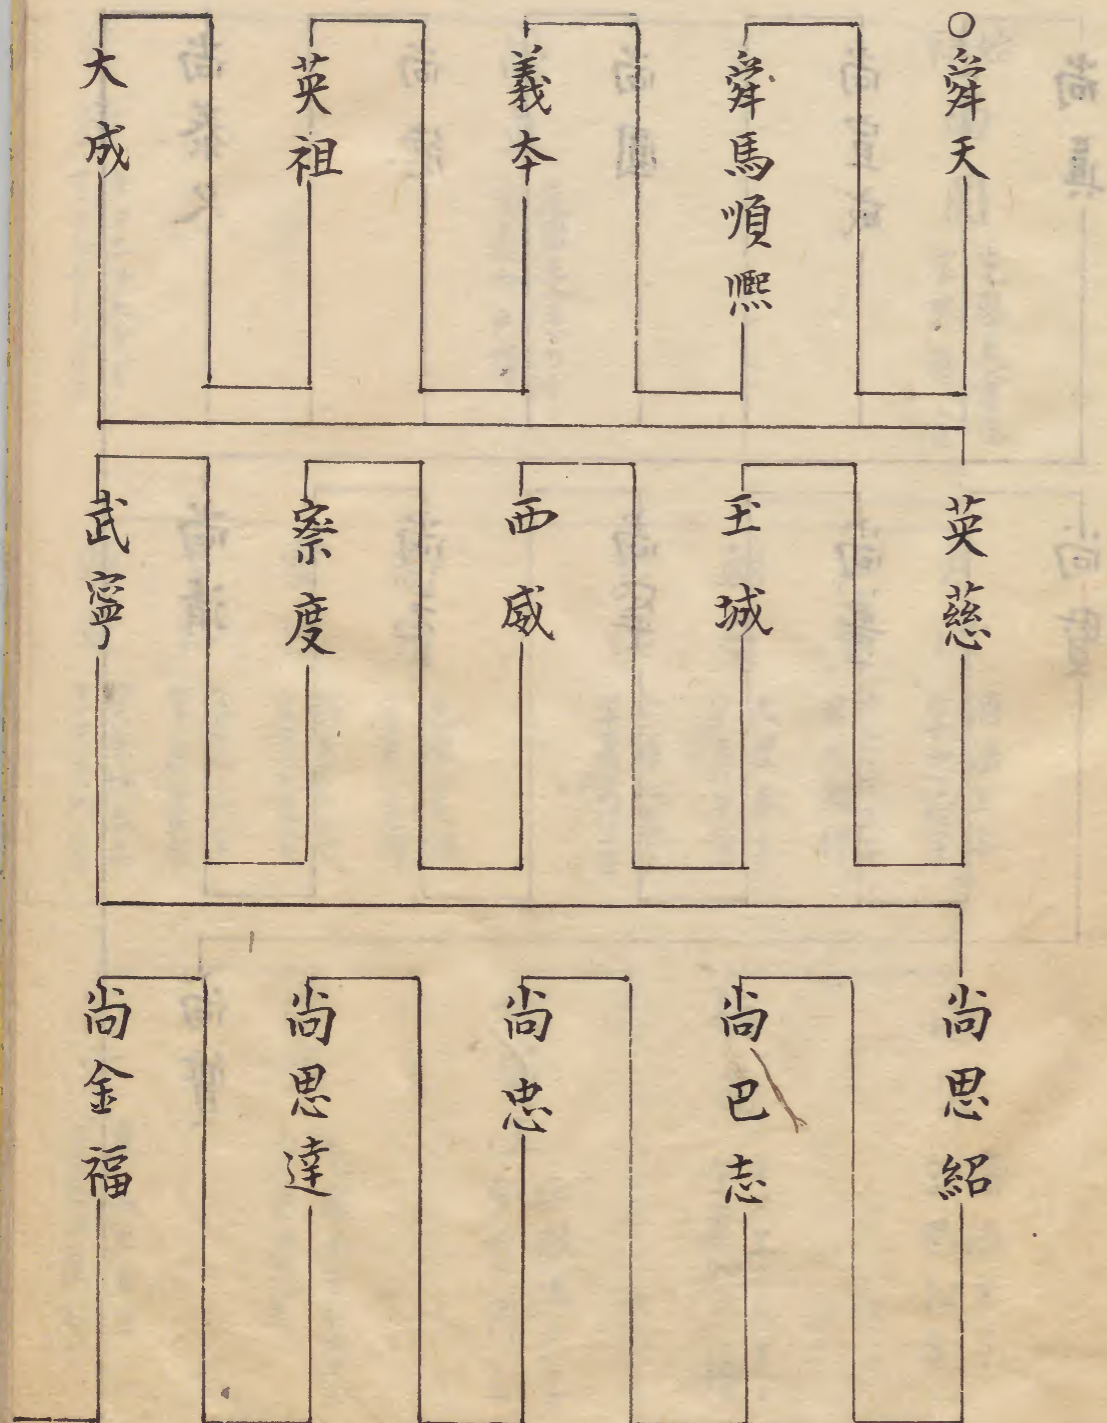 ○舜天
舜馬順熈
義夲
英祖
大成
英慈
玉城
西威
察度
武寧
尚思紹
尚巴志
尚忠
尚思達
尚金福